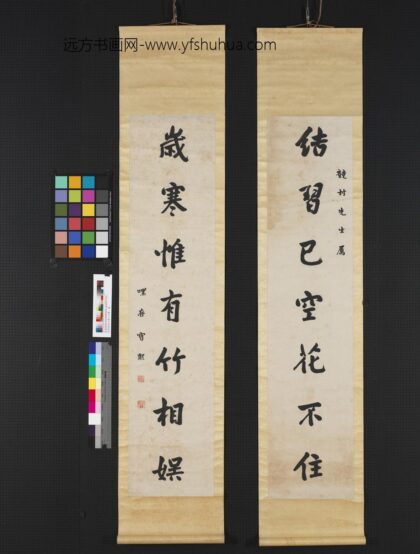 远方书画网-www.yfshuhua.com
結習已空花不住
竹先生屬
歲寒惟有竹相娛
盦寶熙